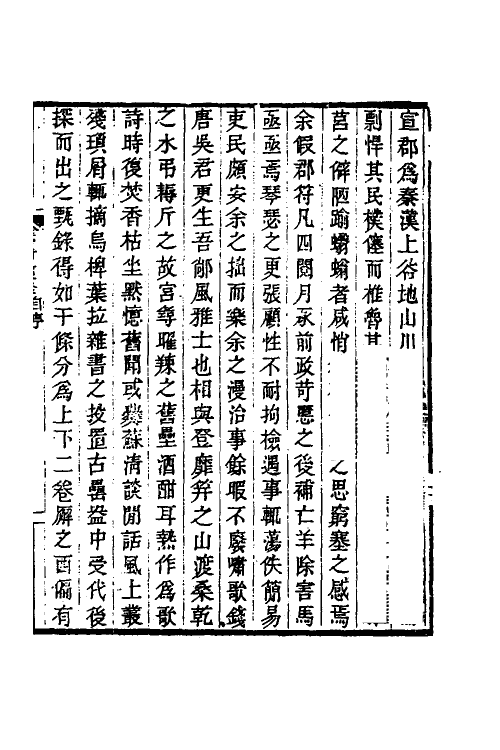 宣郡為秦漢上谷地山川
剽悍其民樸僿而椎魯其
莒之僻陋踰蠮螉者咸悄之思窮塞之感焉
余假郡符凡四閱月承前政苛慝之後補亡羊除害馬
亟亟焉琴瑟之更張顧性不耐拘檢遇事輒蕩佚簡易
吏民頗安余之拙而樂余之漫治事餘暇不廢嘯歌錢
唐吳君更生吾鄉風雅士也相與登靡笄之山渡桑乾
之水弔耨斤之故宮尋曜辣之舊壘酒酣耳熱作為歌
詩時復焚香枯坐默憶舊聞或爨蘇清談閒話風土叢
殘瑣屑輒摘烏椑葉拉雜書之投置古罍盎中受代後
探而出之甄錄得如干條分為上下二卷廨之西偏有